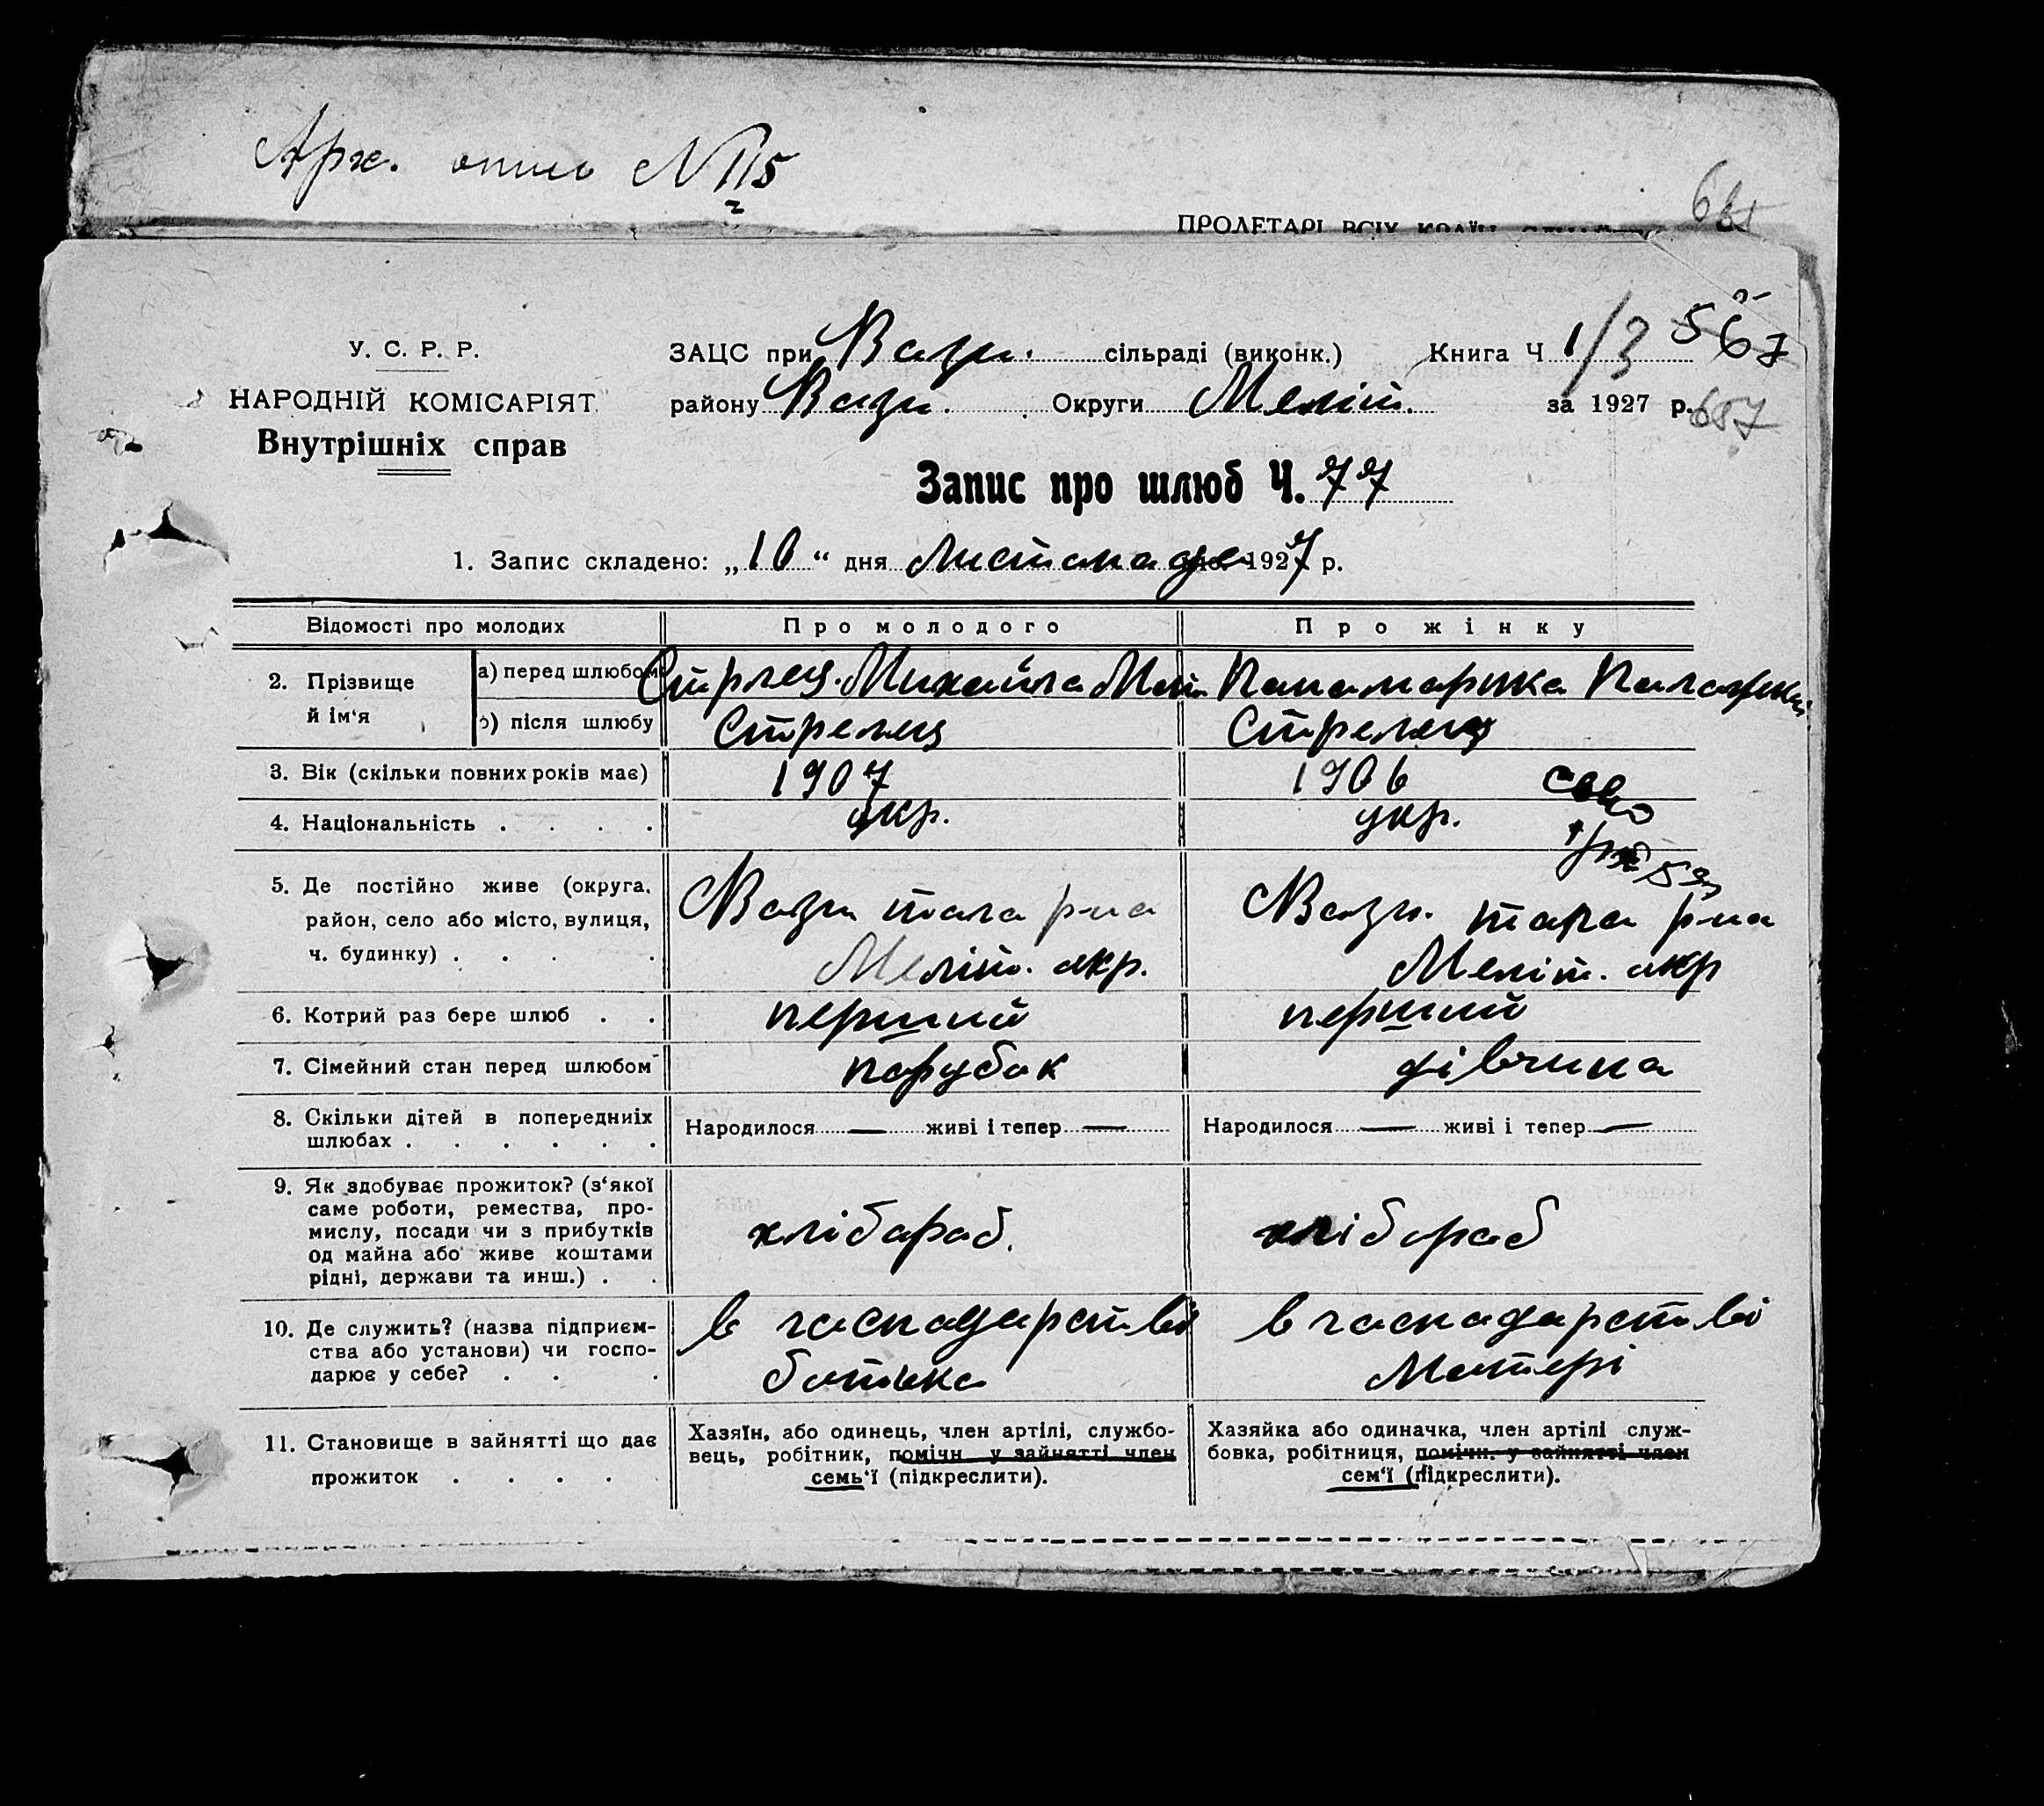 Арх. опись № 115
2
ПРОЛЕТАРІ ВСІХ КРАЇН
У. С. Р. Р.
НАРОДНІЙ КОМІСАРІЯТ
Внутрішніх справ
ЗАЦС при Вазн. сільраді (виконк.) Книга Ч 1/3 567
району Вазн. Округи Меліт. за 1927 р. 657
Запис про шлюб Ч. 77
1. Запис складено: „10“ дня листопада 1927 р.
Відомості про молодих Про молодого Про жінку
2. Прізвище й ім‘я
а) перед шлюбом Стрлец. Михайла Панамаренка
б) після шлюбу Стрелец Стрелец
3. Вік (скільки повних років має) 1907 1906
4. Національність . . . . укр. укр.
5. Де постійно живе (округа, район, село або місто, вулиця, ч. будинку) . . . .
Вазн тала р-на
Меліт. акр.
Вазн. тала р-на
Меліт. акр
6. Котрий раз бере шлюб . . перший перший
7. Сімейний стан перед шлюбом парубок дівчина
8. Скільки дітей в попередниіх шлюбах . . . . . . Народилося — живі і тепер — Народилося — живі і тепер —
9. Як здобуває прожиток? (з‘якої
саме роботи, ремества, про-
мислу, посади чи з прибутків
од майна або живе коштами
рідні, держави та инш.) . .
хлібараб. хлібараб
10. Де служить? (назва підприєм-
ства або установи) чи госпо-
дарює у себе? . . .
в гаспадарстві
батька
в гаспадарстві
Матері
11. Становище в зайнятті що дає
прожиток . . . .
Хазяїн, або одинець, член артілі, службо-
вець, робітник, помічн. у зайнятті член
семь‘ї (підкреслити).
Хазяйка або одиначка, член артілі служ-
бовка, робітниця, помічн. у зайнятті член
сем‘ї (підкреслити).